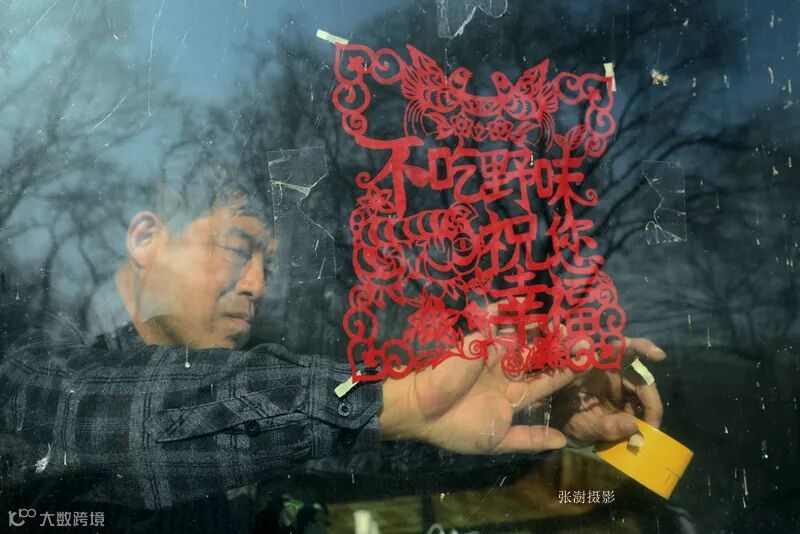 不吃野味
祝您
幸福
张澍摄影
大数跨境